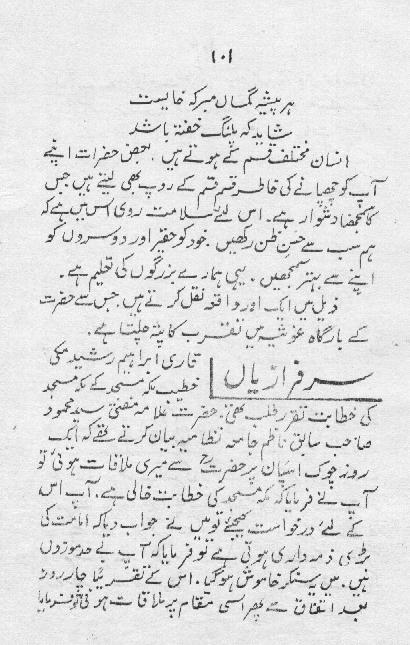 ۱۰۱
ہر بیشہ گماں مبر کہ خالیست
شاید کہ پلنگ خفتہ باشد
انسان مختلف قسم کے ہوتے ہیں۔ بعض حضرات اپنے
آپ کو چھپانے کی خاطر قسم قسم کے روپ بھی لیتے ہیں جس
کا سمجھنا دشوار ہے۔ اس لئے سلامت روی اس میں ہے کہ
ہم سب سے حسن ظن رکھیں۔ خود کو حقیر اور دوسروں کو
اپنے سے بہتر سمجھیں۔ یہی ہمارے بزرگوں کی تعلیم ہے۔
ذیل میں ایک اور واقعہ نقل کرتے ہیں جس سے حضرت
کے بارگاہ غوثیہ میں تقرب کا پتہ چلتا ہے۔
سرفرازیاں
قاری ابراہیم رشید مکی
خطیب مکہ مسجد کے مکہ مسجد
کی خطابت تقرر طلب تھی۔ حضرت علامہ مفتی سید محمود
صاحب سابق ناظم جامعہ نظامیہ بیان کرتے تھے کہ ایک
روز چوک اسپان پر حضرتؒ سے میری ملاقات ہوئی تو
آپ نے فرمایا کہ مکہ مسجد کی خطابت خالی ہے، آپ اس
کے لئے درخواست کیجئے تو میں نے جواب دیا کہ امامت کی
بڑی ذمہ داری ہوتی ہے تو فرمایا کہ آپ ہی موزوں
ہیں۔ میں یہ سنکر خاموش ہوگیا۔ اس کے تقریباً چار روز
بعد اتفاق سے پھر اسی مقام پر ملاقات ہوئی تو فرمایا